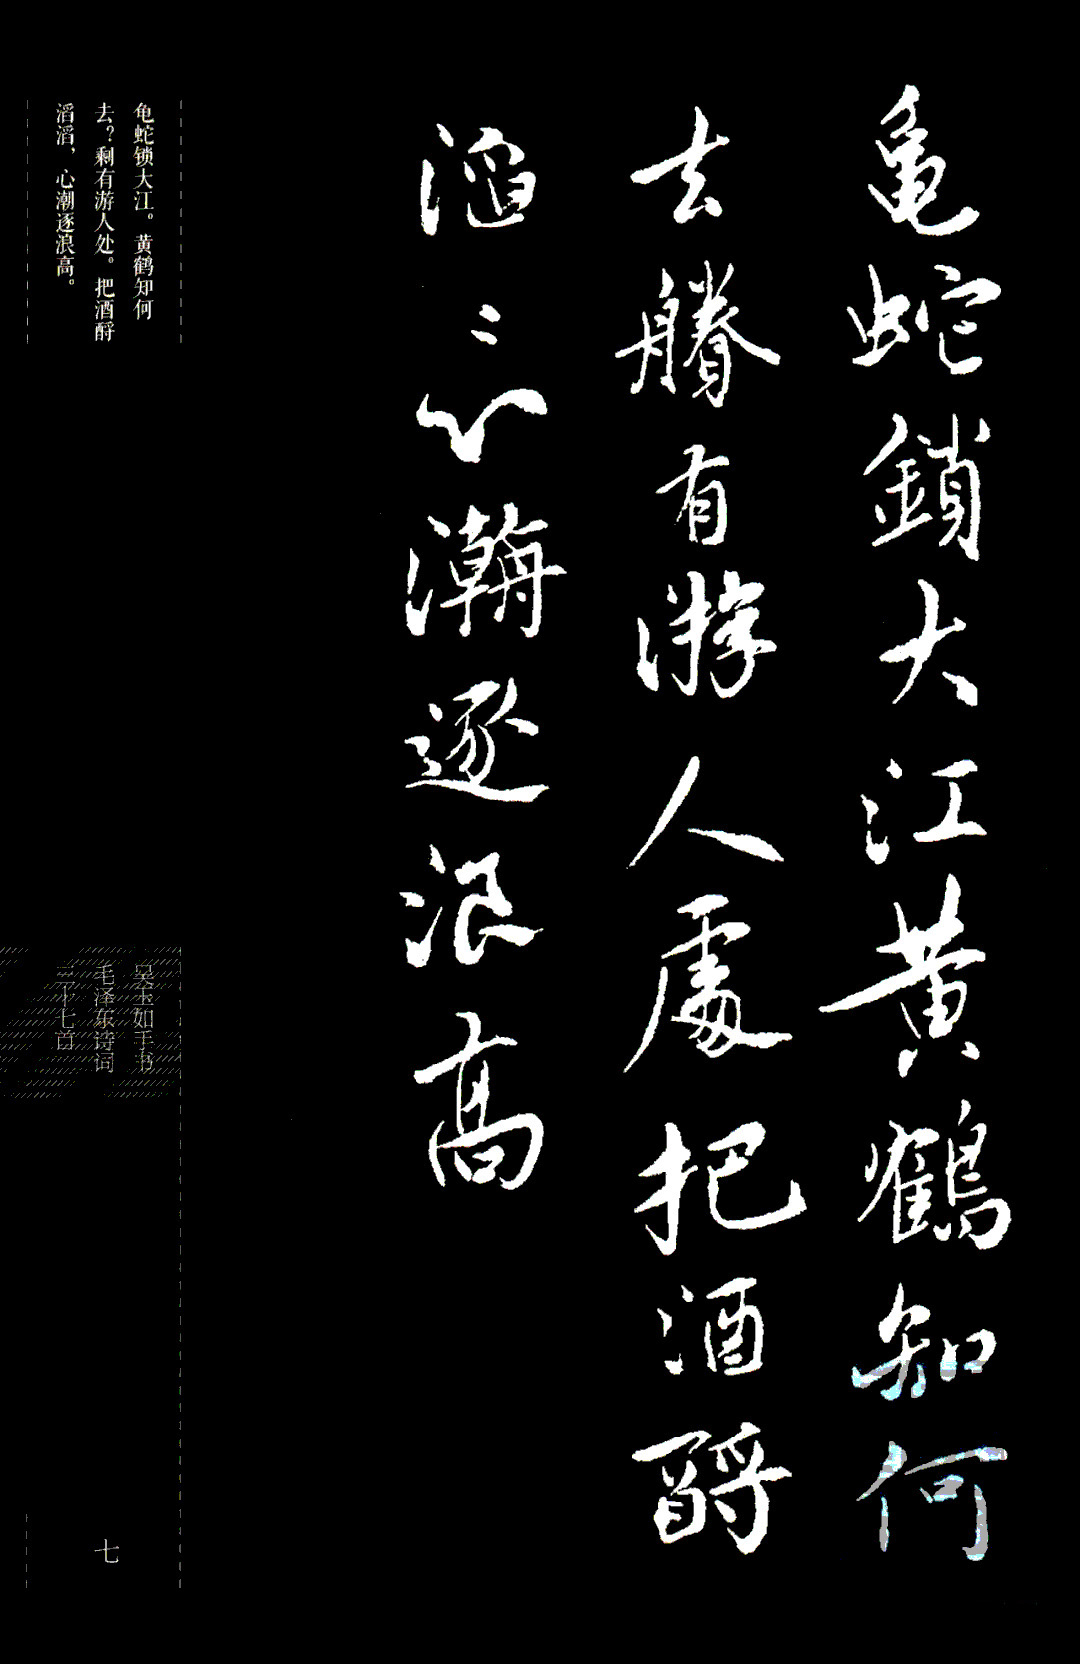 龜蛇鎖大江黄鶴知何
去賸有游人處把酒酹
滔〻心瀚逐浪高
龟蛇锁大江。黄鹤知何
去？剩有游人处。把酒酹
滔滔，心潮逐浪高。
吴玉如手书
毛泽东诗词
三十七首
七